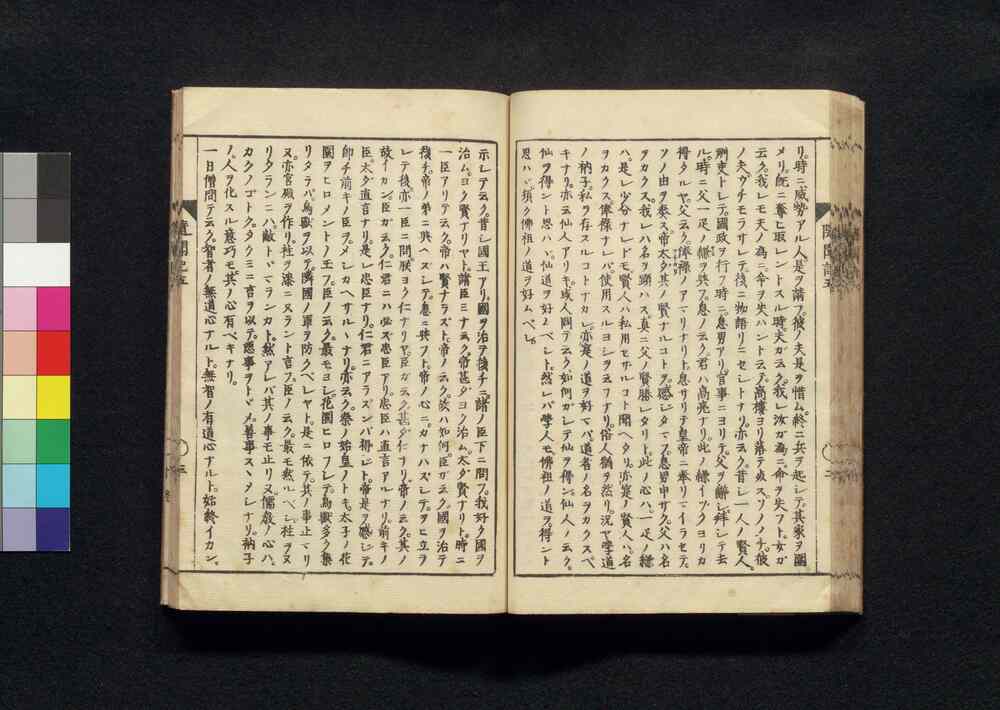 リ。時ニ威勢アル人是ヲ請フ。彼ノ夫是ヲ惜ム。終ニ兵ヲ起シテ、其家ヲ圍
メリ。既ニ奪ヒ取レントスル時、夫ガ云ク、我レ汝ガ為ニ命ヲ失フト。女ガ
云ク、我レモ夫ノ為ニ命ヲ失ハントテ、高樓ヨリ落テ死ス。ソノノチ、彼
ノ夫、ウチモラサレテ、後ニ物語リニセシトナリ。亦云ク、昔シ一人ノ賢人、
州吏トシテ國政ヲ行フ時ニ、息男アリ。官事ニヨリテ父ヲ辭シ拜シテ去
ル。時ニ父一疋ノ縑ヲ與フ。息ノ云ク、君ハ高亮ナリ。此ノ縑イヅクヨリカ
得タルヤ。父云ク、俸祿ノアマリナリト。息サリテ皇帝ニ奉リマイラセテ、
ソノ由ヲ奏ス。帝太ダ其ノ賢ナルコトヲ感シタマフ。息男申サク、父ハ名
ヲカクス。我レハ名ヲ顯ハス。真ニ父ノ賢勝レタリト。此ノ心ハ、一疋ノ縑
ハ是レ少分ナレドモ、賢人ハ私用セザルコト聞ヘタリ。亦寔ノ賢人ハ、名
ヲカクス。俸祿ナレバ、使用スルヨシヲ云フナリ。俗人猶ヲ然リ。況ヤ學道
ノ衲子、私ヲ存スルコトナカレ。亦寔ノ道ヲ好マバ、道者ノ名ヲカクスベ
キナリ。亦云、仙人アリキ。或人問テ云ク、如何ガシテ仙ヲ得ン。仙人ノ云ク、
仙ヲ得ント思ハバ、仙道ヲ好ムベシト。然レバ學人モ佛祖ノ道ヲ得ント
思ハバ、須ク佛祖ノ道ヲ好ムベシ。
示シテ云ク、昔シ國王アリ。國ヲ治テ後チ、諸ノ臣下ニ問フ。我好ク國ヲ
治ム。ヨク賢ナリヤト。諸臣ミナ云ク、帝甚ダヨク治ム。太ダ賢ナリト。時ニ
一臣アリテ云ク、帝ハ賢ナラズト。帝ノ云ク、故ハ如何。臣ガ云ク、國ヲ治テ
後チ、帝ノ弟ニ與ヘズシテ、息ニ與フト。帝ノ心ニカナハズシテ、ヲヒ立ラ
レテ後、亦一臣ニ問、朕ヨク仁ナリヤ。臣ガ云ク、甚ダ仁ナリ。帝ノ云ク、其ノ
故イカン。臣ガ云ク、仁君ニハ必ズ忠臣アリ。忠臣ハ直言アルナリ。前キノ
臣、太ダ直言ナリ。是レ忠臣ナリ。仁君ニアラズンバ得ジト。帝是ヲ感シテ、
即チ前キノ臣ヲメシカヘサルヽナリ。亦云ク、秦ノ始皇ノトキ、太子ノ花
園ヲヒロメントス。臣ノ云ク、最モヨシ。花園ヒロフシテ鳥獸多ク集
リタラバ、鳥獸ヲ以テ隣國ノ軍ヲ防クベシヤト。是ニ依テ其ノ事止マリ
ヌ。亦宮殿ヲ作リ、柱ヲ漆ニヌラント言フ。臣ノ云ク、最モ然ルベシ。柱ヲヌ
リタランニハ、敵トヾマランカト。然アレバ其ノ事モ止リヌ。儒教ノ心ハ、
カクノゴトク、タクミニ言ヲ以テ、惡事ヲトヾメ、善事ヲスヽメシナリ。衲子
ノ人ヲ化スル意巧モ其ノ心有ベキナリ。
一日僧問テ云ク、智者ノ無道心ナルト、無智ノ有道心ナルト、始終イカン。